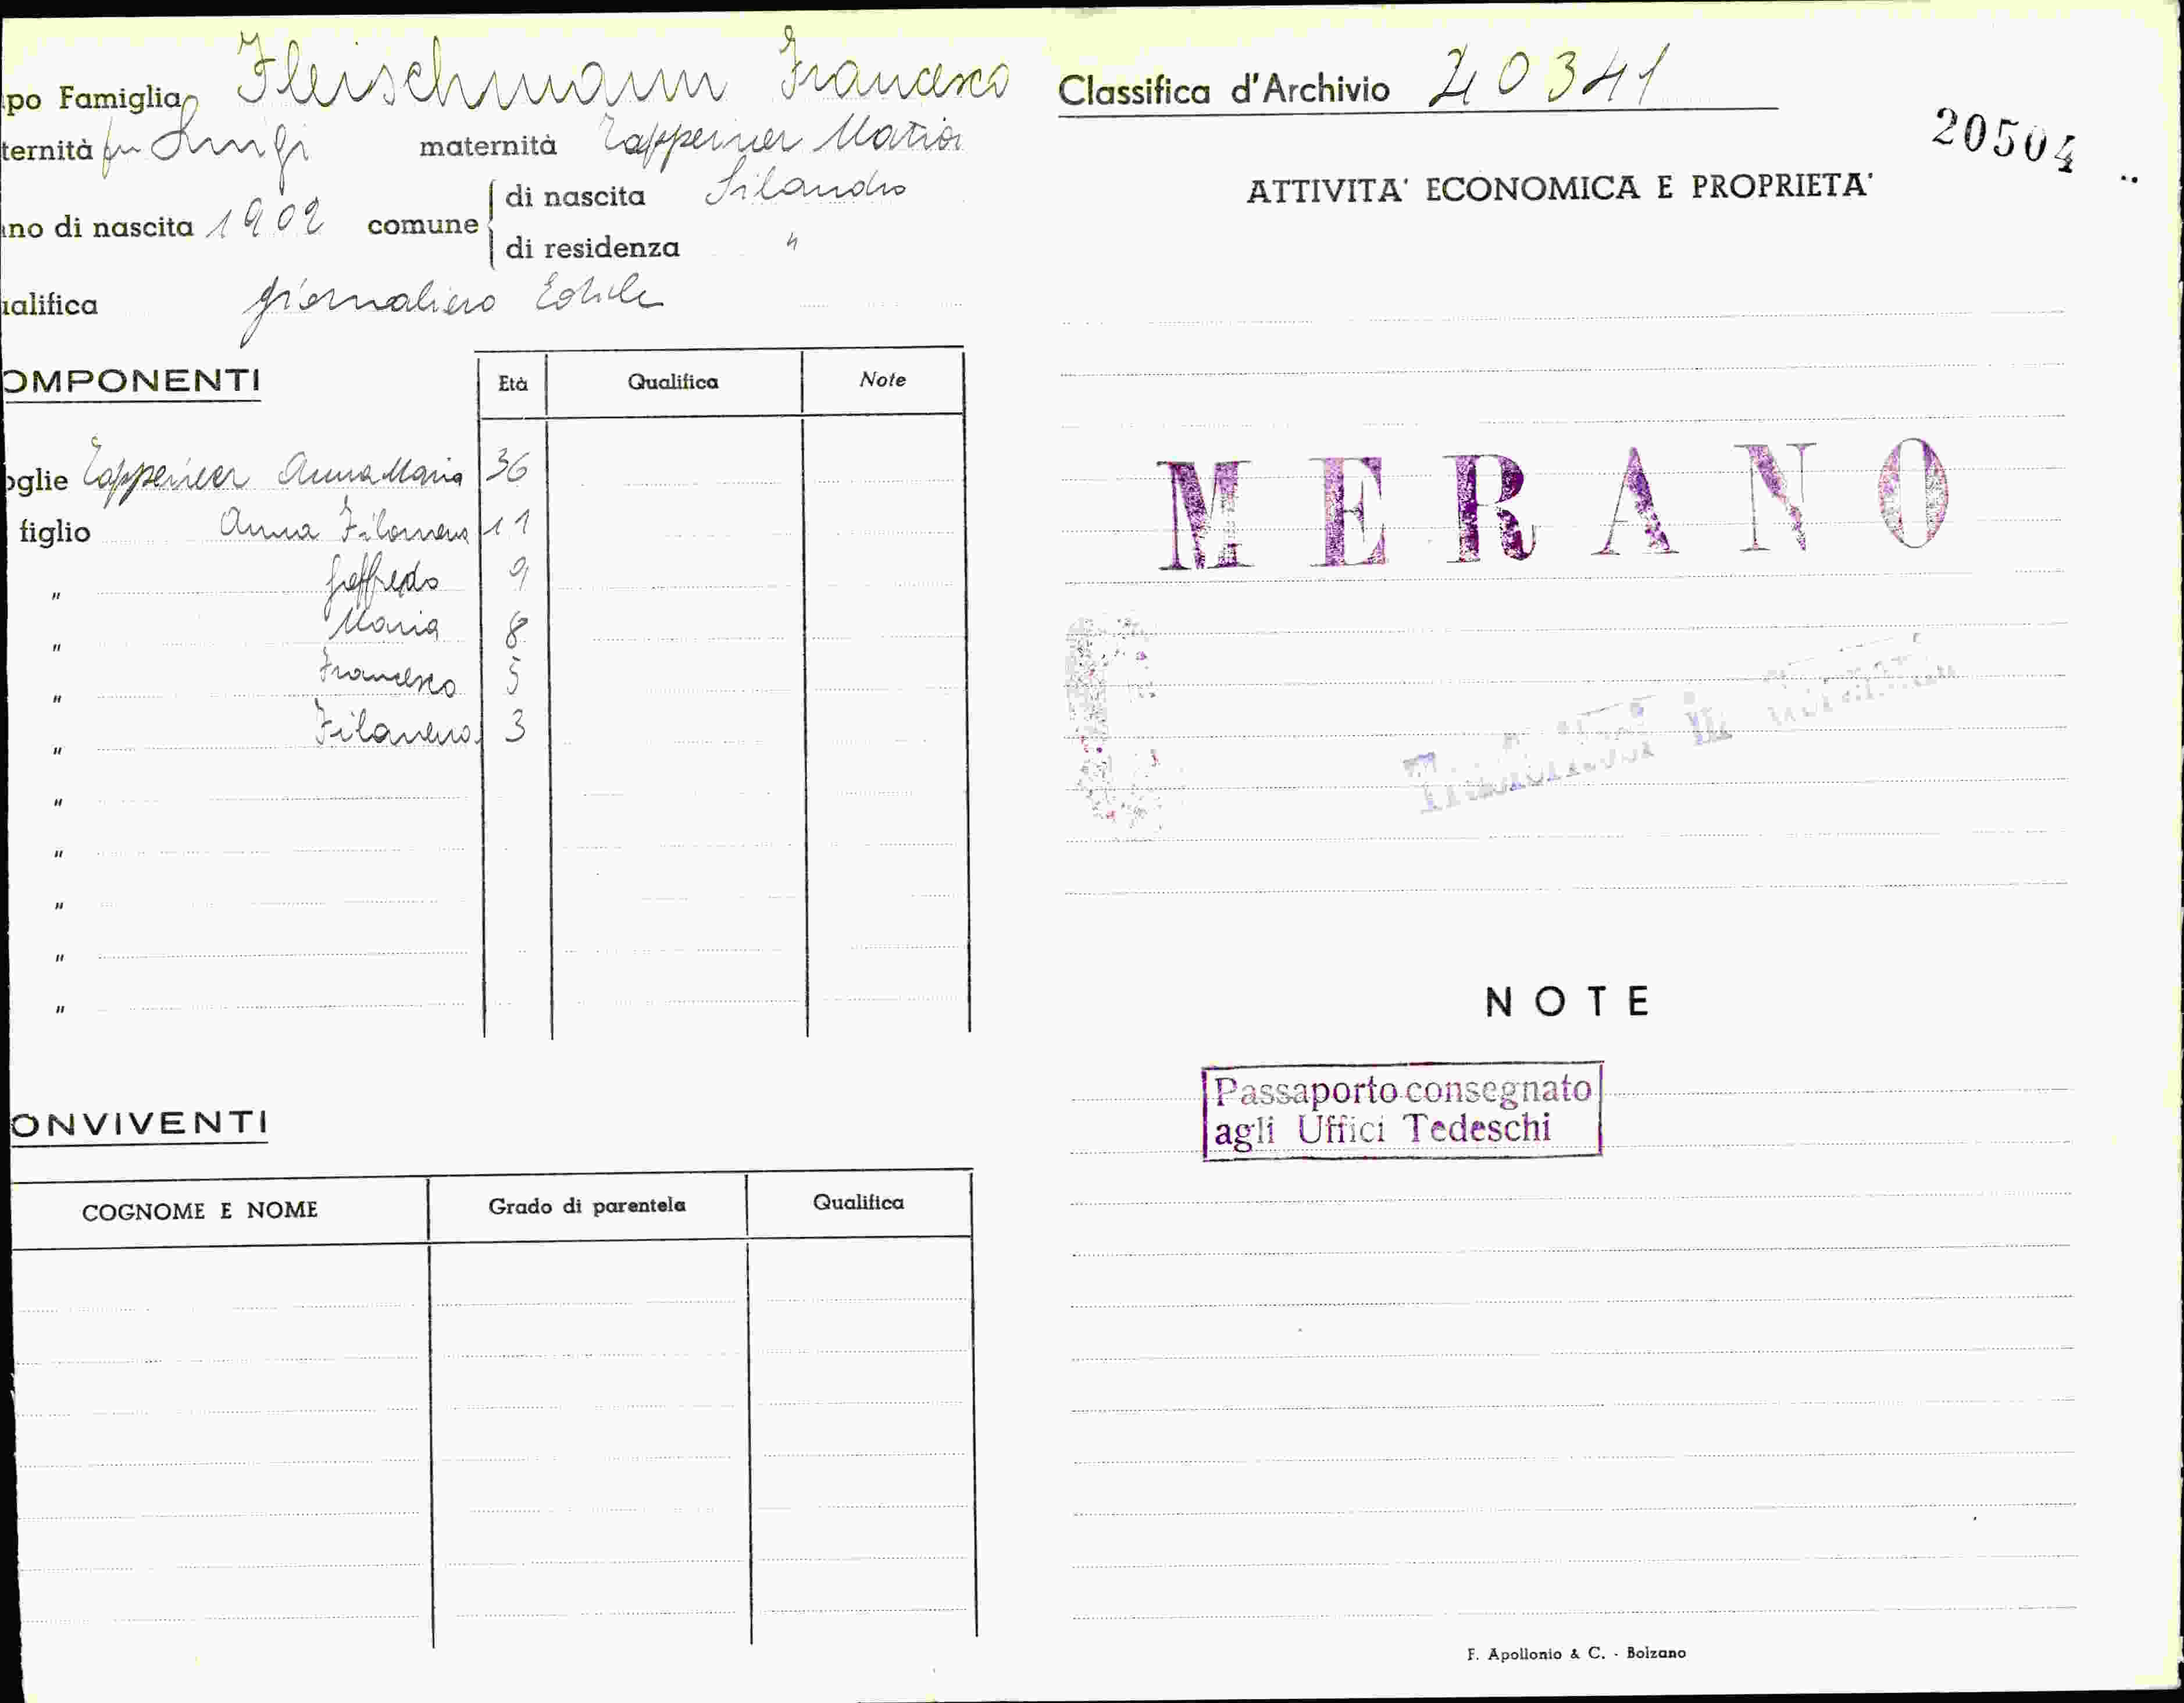 po Famiglia Fleischmann Francesco
ternità fu Luigi maternità Tappeiner Maria
no di nascita 1902 comune di nascita Silandro
di residenza "
alifica giornaliero Edile
OMPONENTI Età Qualifica Note
oglie Tappeiner Anna Maria 36
figlio Anna Filomena 11
" Goffredo 9
" Maria 8
" Francesco 5
" Filomena 3
"
"
"
"
"
ONVIVENTI
COGNOME E NOME Grado di parentela Qualifica
Classifica d'Archivio 20341
20504
ATTIVITA' ECONOMICA E PROPRIETA'
MERANO
in
NOTE
Passaporto consegnato
agli Uffici Tedeschi
F. Apollonio & C. - Bolzano